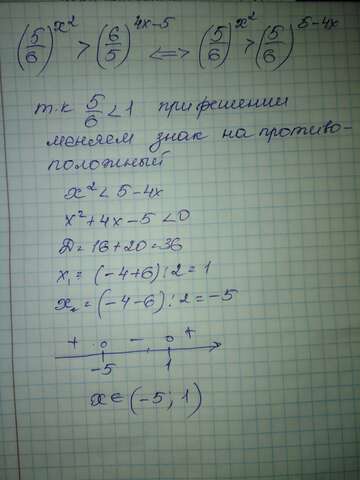 (5/6)^x² > (6/5)^4x-5 <=> (5/6)^x² > (5/6)^5-4x
т.к 5/6 < 1 при решении
меняем знак на противо-
положный
x² < 5-4x
x²+4x-5<0
Д=16+20=36
x₁ = (-4+6):2=1
x₂=(-4-6):2=-5
+ - +
-5 1
x∈(-5; 1)